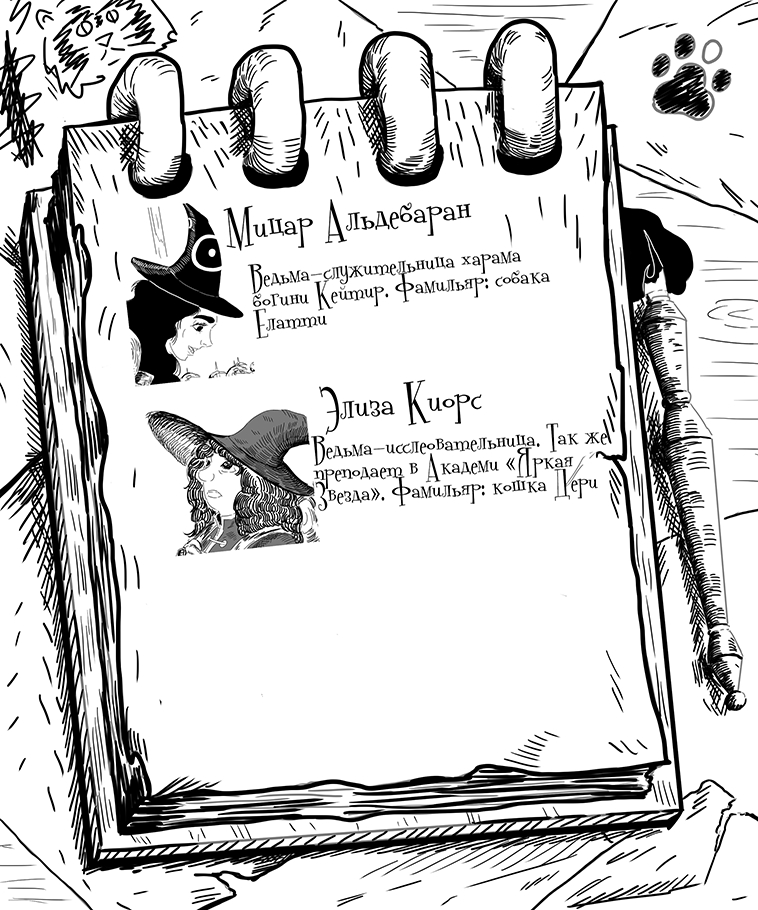 Мицар Альдебаран
Ведьма-служительница харама
богини Кейтир. Фамильяр: собака
Елатти
Элиза Киорс
Ведьма-исслеовательница. Так же
преподает в Академи «Яркая
Звезда». Фамильяр: кошка Дери